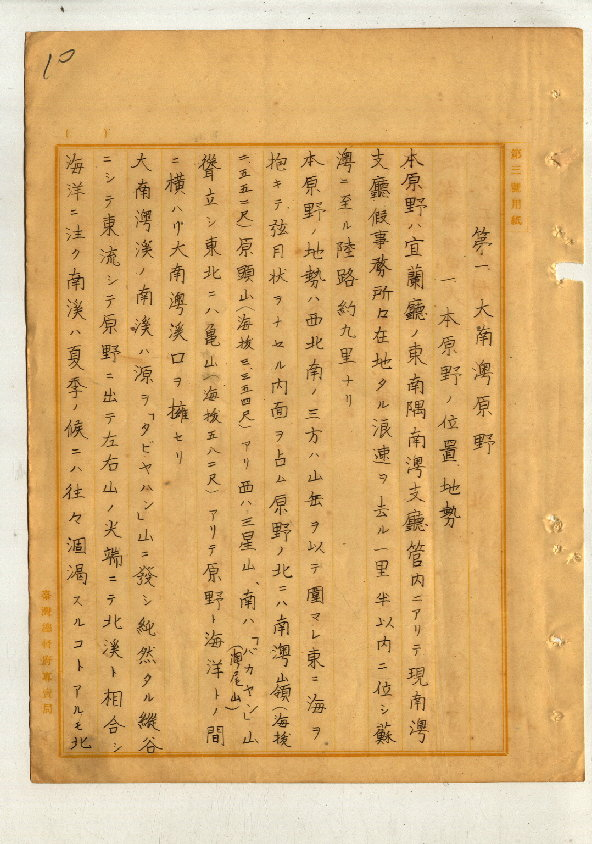 10
第三號用紙
第一 大南澳原野
一 本原野ノ位置、地勢
本原野ハ宜蘭廳ノ東南隅南澳支廳管内ニアリテ現南澳
支廳假事務所所在地タル浪速ヲ去ル一里半以内ニ位シ蘇
澳ニ至ル陸路約九里ナリ
本原野ノ地勢ハ西北南ノ三方ハ山岳ヲ以テ圍マレ東ニ海ヲ
抱キテ弦月状ヲナセル内面ヲ占ム原野ノ北ニハ南澳嶺(海拔
二五五二尺)原頭山(海拔三、三五四尺)アリ西ハ三星山、南ハ「バカヤン」山
(南尾山)
聳立シ東北ニハ亀山(海拔五八二尺)アリテ原野ト海洋トノ間
ニ横ハリ大南澳溪口ヲ擁セリ
大南澳溪ノ南溪ハ源ヲ「タビヤハン」山ニ發シ純然タル縱谷
ニシテ東流シテ原野ニ出テ左右山ノ尖端ニテ北溪ト相合シ
海洋ニ注ク南溪ハ夏季ノ候ニハ往々涸渇スルコトアルモ北
臺灣總督府專賣局